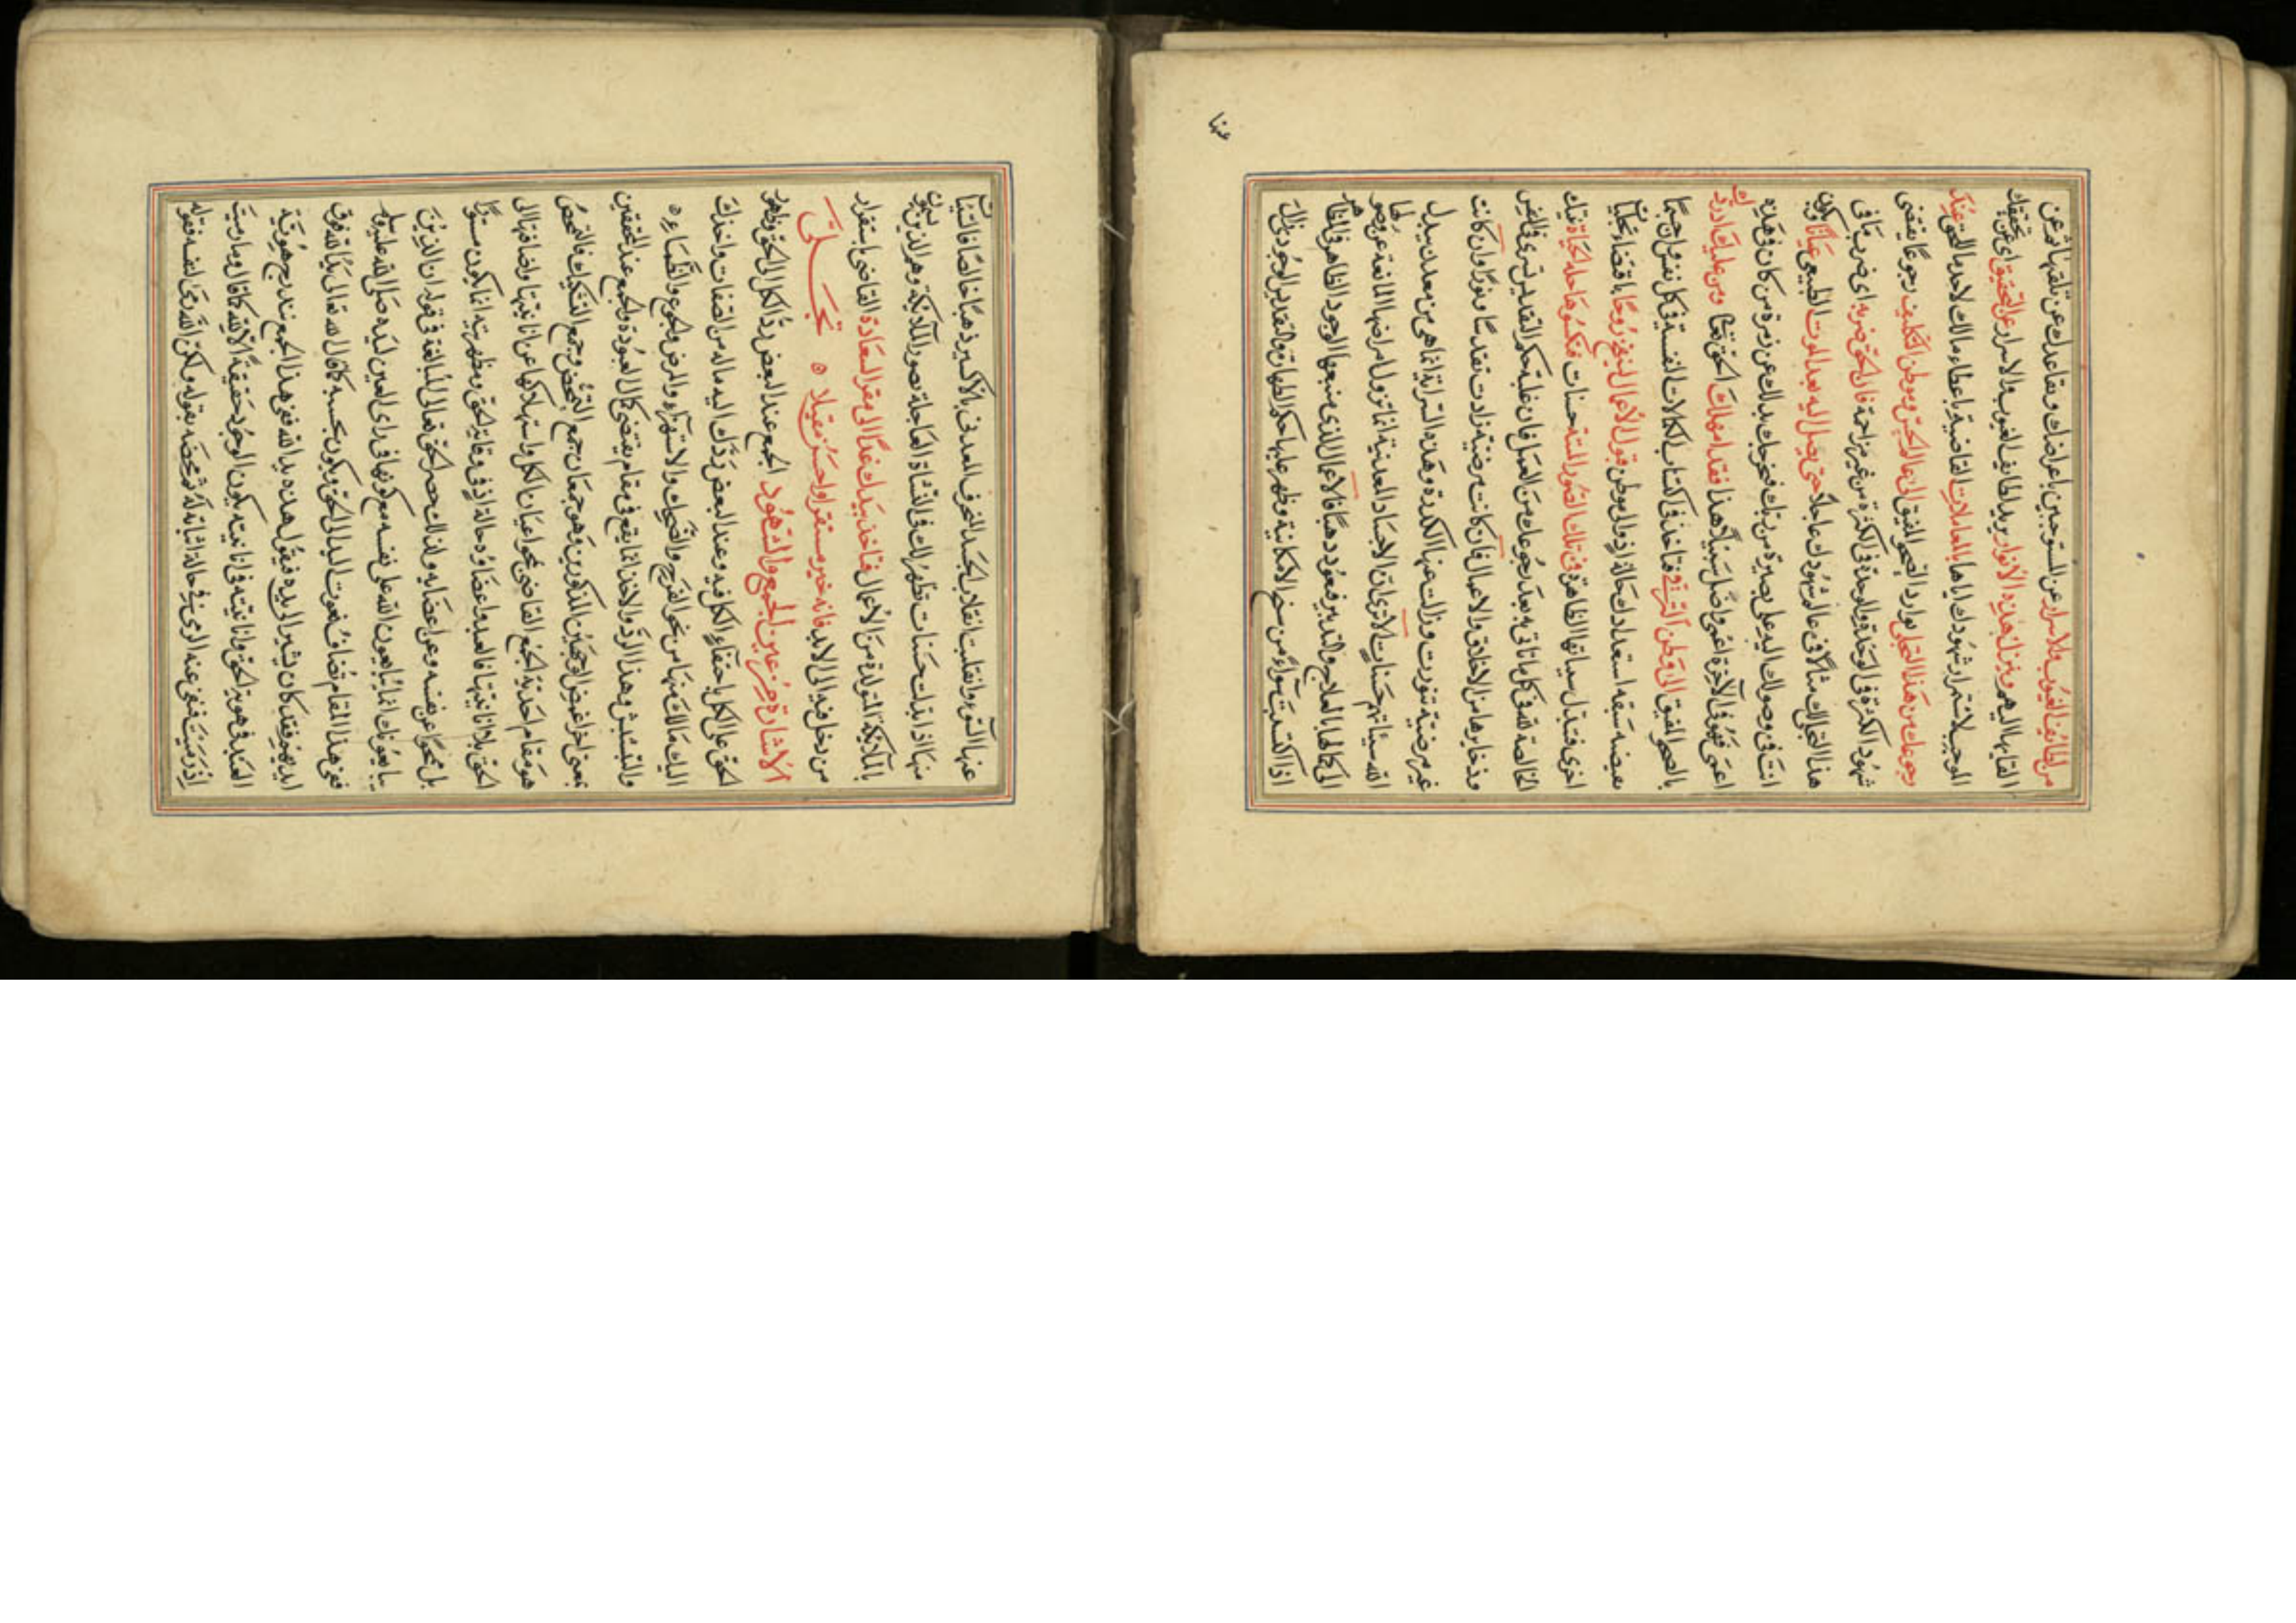 من لطائف الغيوب والاسرار عن المستوجبين باعراضك وتقاعدك عن تلقيها ثم عن
القائها اليهم وينزل هذه الانوار يريد لطائف الغيوب والاسرار عن التحقيق اى عن تحقيقك
الموجب لاستمرار شهودك اياها بالمعاملات القاضية باعطاء مالك لاحد بالحق عندك
رجوعك من هذا التجلى بوارد الصحو المفيق الى عالم الحس وموطن التكليف رجوعا يقضى
شهود الكثرة فى الوحدة والوحدة فى الكثرة من غير مزاحمة فان الحق ضربه اى ضرب ما فى
هذا التجلى لك مثالا فى عالم شهودك عاجلا حتى يصل اليه بعد الموت الطبيعى عيانا ويكون
انت فى وصولك اليه على بصيرة من ربك بذلك عن زمرة من كان فى هذه
اعمى فهو فى الآخرة اعمى واضل سبيلا هذا فقد امهلك الحق تعالى ومن عليك اذ ردك
بالصحو المفيق الى موطن الترقى فتاخذ فى اكتساب الكمالات النفسية فى كل نفس
استعدادك حالة اذ ذاك موطن قبول الاعمال لينفخ روحا باقتضاء تجليات
اخرى فتبدل سيئاتها الظاهرة فى تلك الصور الميتة حسنات فتكسوها حلة الحياة
الخالصة لله فى كل ما تاتى به بعد رجوعك من العمل فان غلبة حكم التقديس تسرى فى النفس
وذخايرها من الاخلاق والاعمال فان كانت مرضية زادت تقدسا ونورا وان كانت
غير مرضية تنورت وزالت عنها الكدرة وهذه السراية انما هى من معدن يبدل
الله سيئاتهم حسنات الا ترى ان الاجساد المعدنية انما تزول امراضها المانعة عن وصولها
الى كمالها بالعلاج والتدبير فتعود ذهبا فالاعمال الذى منبعها الوجود الظاهر فى المظاهر
اذا اكتسبت سواء من سنخ الامكانية وظهر عليها حكم الطهارة والتقديس الوجودى زال
عنها
عنها السوء وانقلبت انقلاب الجسد المنحرف المعدنى بالاكسير ذهبا خالصا فالسيئات
منها اذا بدلت حسنات تظهر لك فى النشأة العاجلة بصور الملائكة وهم الذين
بالملائكة المتولدة من الاعمال فتاخذ بيدك غدا الى مقر السعادة القاضى باستقرار
من دخل فيه الى الابد فانه خير مستقرا واحسن مقيلا تجلى
الاشارة من عين الجمع والشهود الجمع عند البعض رد الكل الى الحق وظهور
الحق على الكل باختفاء الكل فيه وعند البعض ردك اليه ماله من الصفات واخذك
اليك مالك منها من نحو الفرح والضحك والاستهزاء والمرض والجوع والظماء
والتبشبش وهذا الرد والاخذ انما يقع فى مقام يقتضى كمال العبودة والجمع عند المحققين
بمعنى اخر الوجهين المذكورين وهو جمعان جمع التمحض وجمع التشكيك فالتمحض
هو مقام احدية الجمع القاضى بمحو اعيان الكل واستهلاكها عن انانيتها واضافتها الى
الحق بلا انانيتها فالعبد واعضاؤه حالتئذ فى وقاية الحق ومظهريته انما يكون مستورا
بل محوا عن نفسه وعن اعضايه ولذلك حصر الحق تعالى المبالغة فى قوله ان الذين
يبايعونك انما يبايعون الله على نفسه مع كونها فى راى العين ليده صلى الله عليه وسلم
ففى هذا المقام تضاف نعوت العبد الى الحق ويكون بحسبه كما قال الله تعالى يد الله فوق
ايديهم فقد كان يشير الى يده فيقول هذه يد الله ففى هذا الجمع تندرج هوية
العبد فى هوية الحق وانانيته فى انانيته يكون الوجود حقيقة الا لله كما قال وما رميت
اذ رميت فنفى عنه الرمى فى حالة اثباته له ثم محضه بقوله ولكن الله رمى لنفسه فقوله